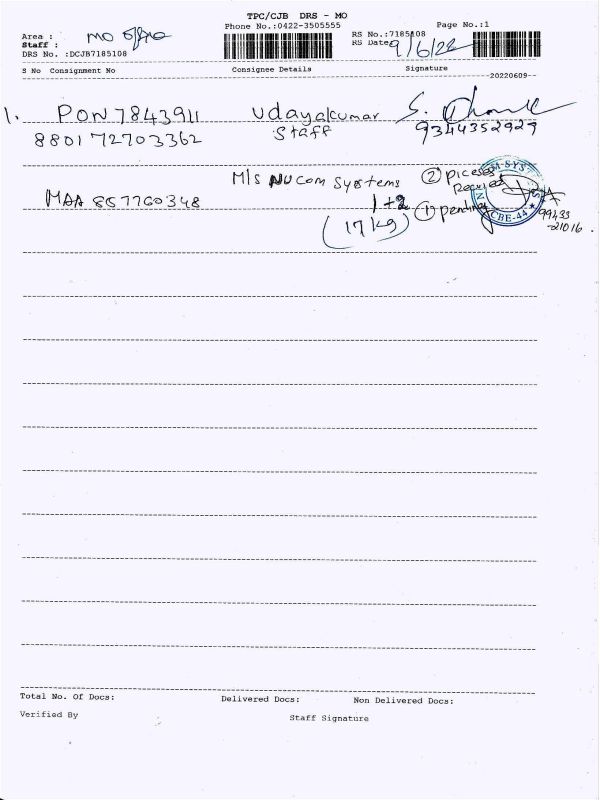 TPC/CJB DRS - MO
Phone No.:0422-3505555
Page No.:1
Area : MO office
Staff :
DRS No. :DCJB7185108
RS No.:7185108
RS Date: 9/6/22
S No Consignment No Consignee Details Signature
20220609
1. PON 7843911 Udayakumar
8801 72703362 Staff 9344352929
M/s NUCOM Systems ② pieces
Received
MAA 857760348 1+2 ① pending
(17 kg)
CBE-44
99433
-21016.
Total No. Of Docs: Delivered Docs: Non Delivered Docs:
Verified By Staff Signature